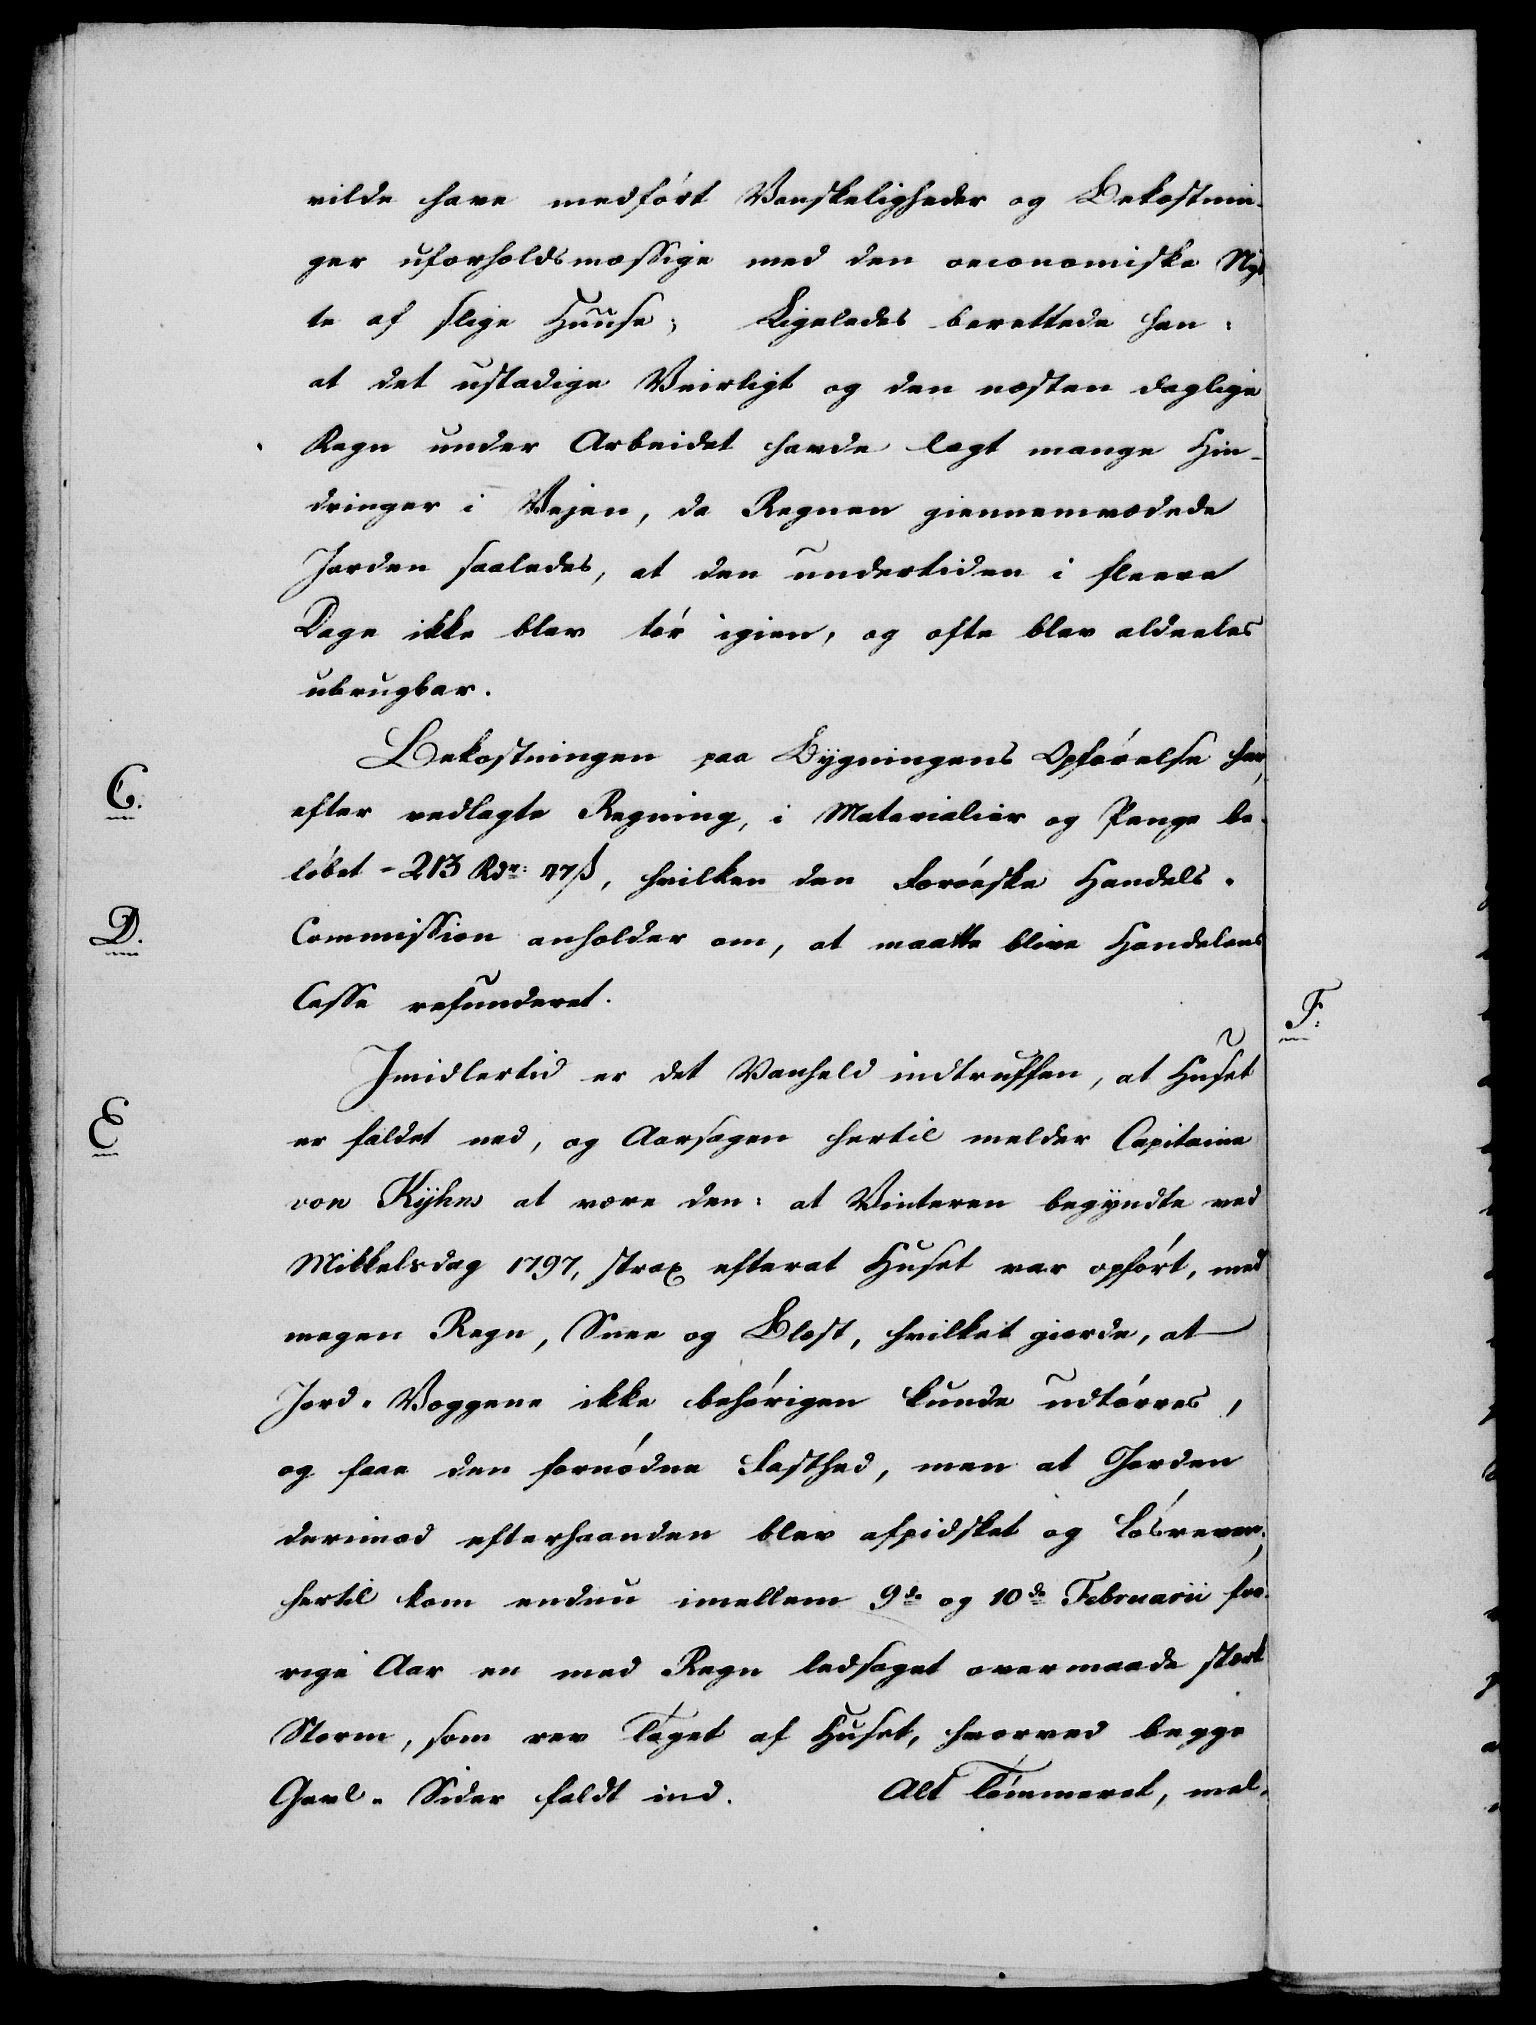 vilde have medført Vanskeligheder og Bekostnin-
ger uforholdsmæssige med den oeconomiske Nyt
te af slige Huuse; Ligeledes berettede han:
at det ustadige Veirligt og den næsten daglige
Regn under Arbeidet havde lagt mange Hin-
dringer i Vejen, da Regnen giennemvædede
Jorden saaledes, at den undertiden i fleere
Dage ikke blev tør igien, og ofte blev aldeeles
ubrugbar.
Bekostningen paa Bygningens Opførelse har,
C.
efter vedlagte Regning, i Materialier og Penge be-
løbet - 213 Rdr: 47 ß, hvilken den Færøeske Handels-
D.
Commission anholder om, at maatte blive Handelens
Casse refunderet.
F.
Imidlertid er det Vanheld indtruffen, at Huset
E
er faldet ned, og Aarsagen hertil melder Capitaine
von Kyhns at være den: at Vinteren begyndte ved
Mikkelsdag 1797, strax efterat Huset var opført, med
megen Regn, Snee og Blæst, hvilket giorde, at
Jord-Væggene ikke behørigen kunde udtørres,
og faae den fornødne Fasthed, men at Jorden
derimod efterhaanden blev afpidsket og løsreven;
hertil kom endnu imellem 9de og 10de Februarii for-
rige Aar en med Regn ledsaget overmaade stærk
Storm, som rev Taget af Huset, hvorved begge
Gavl-Sider faldt ind. Alt Tømmeret, mel-